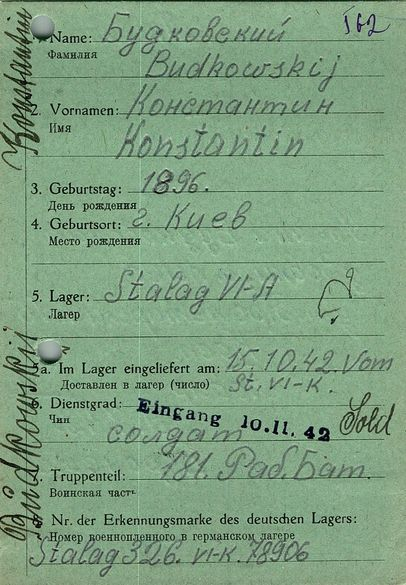 162
1. Name: Будковский
Фамилия
Budkowskij
2. Vornamen: Константин
Имя
Konstantin
3. Geburtstag: 1896.
День рождения
4. Geburtsort: г. Киев
Место рождения
5. Lager: Stalag VI-A
Лагерь
5a. Im Lager eingeliefert am: 15.10.42. Vom
Доставлен в лагерь (число) St. VI-K.
6. Dienstgrad: Eingang 10.11.42 Sold
Чин солдат
7. Truppenteil: 181. Раб. Бат.
Воинская часть
8. Nr. der Erkennungsmarke des deutschen Lagers:
Номер военнопленного в германском лагере
Stalag 326. VI-K. 78906
Budkowskij Konstantin